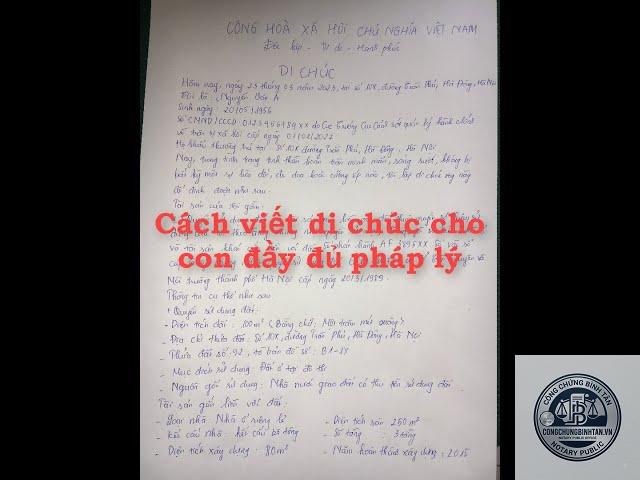 CỘNG HOÀ XÃ HỘI CHỦ NGHĨA VIỆT NAM
Độc lập - Tự do - Hạnh phúc
DI CHÚC
Hôm nay, ngày 23 tháng 03 năm 2023, tại số 10X, đường Trần Phú, Hà Đông, Hà Nội
Tôi là: Nguyễn Văn A
Sinh ngày: 20/05/1956
Số CMND/CCCD 0123456789XX do Cục Trưởng Cục Cảnh sát quản lý hành chính
về trật tự xã hội cấp ngày 01/01/2022
Hộ khẩu thường trú tại Số 10X đường Trần Phú, Hà Đông, Hà Nội
Nay, trong tình trạng tinh thần hoàn toàn minh mẫn, sáng suốt, không bị
bất kỳ một sự lừa dối, đe doạ hoặc cưỡng ép nào, tôi lập di chúc này
để định đoạt như sau.
Tài sản của tôi gồm:
Cách viết di chúc cho
con đầy đủ pháp lý
và tài sản khác gắn liền với đất số phát hành AF 3895XX
Môi trường thành phố Hà Nội cấp ngày 20/3/1989.
Thông tin cụ thể như sau
+ Quyền sử dụng đất:
- Diện tích đất: 100m² (Bằng chữ: Một trăm mét vuông)
- Địa chỉ thửa đất: Số 10X, đường Trần Phú, Hà Đông, Hà Nội
- Thửa đất số: 92, tờ bản đồ số: B1-24
- Mục đích sử dụng: Đất ở tại đô thị
- Nguồn gốc sử dụng: Nhà nước giao đất có thu tiền sử dụng đất
Tài sản gắn liền với đất:
- Loại nhà: Nhà ở riêng lẻ
- Diện tích sàn: 260m²
- Kết cấu nhà: kết cấu bê tông
- Số tầng: 3 tầng
- Diện tích xây dựng: 80m²
- Năm hoàn thành xây dựng: 2015
CÔNG CHỨNG BÌNH TÂN
CONGCHUNGBINHTAN.VN
NOTARY PUBLIC OFFICE
NOTARY PUBLIC